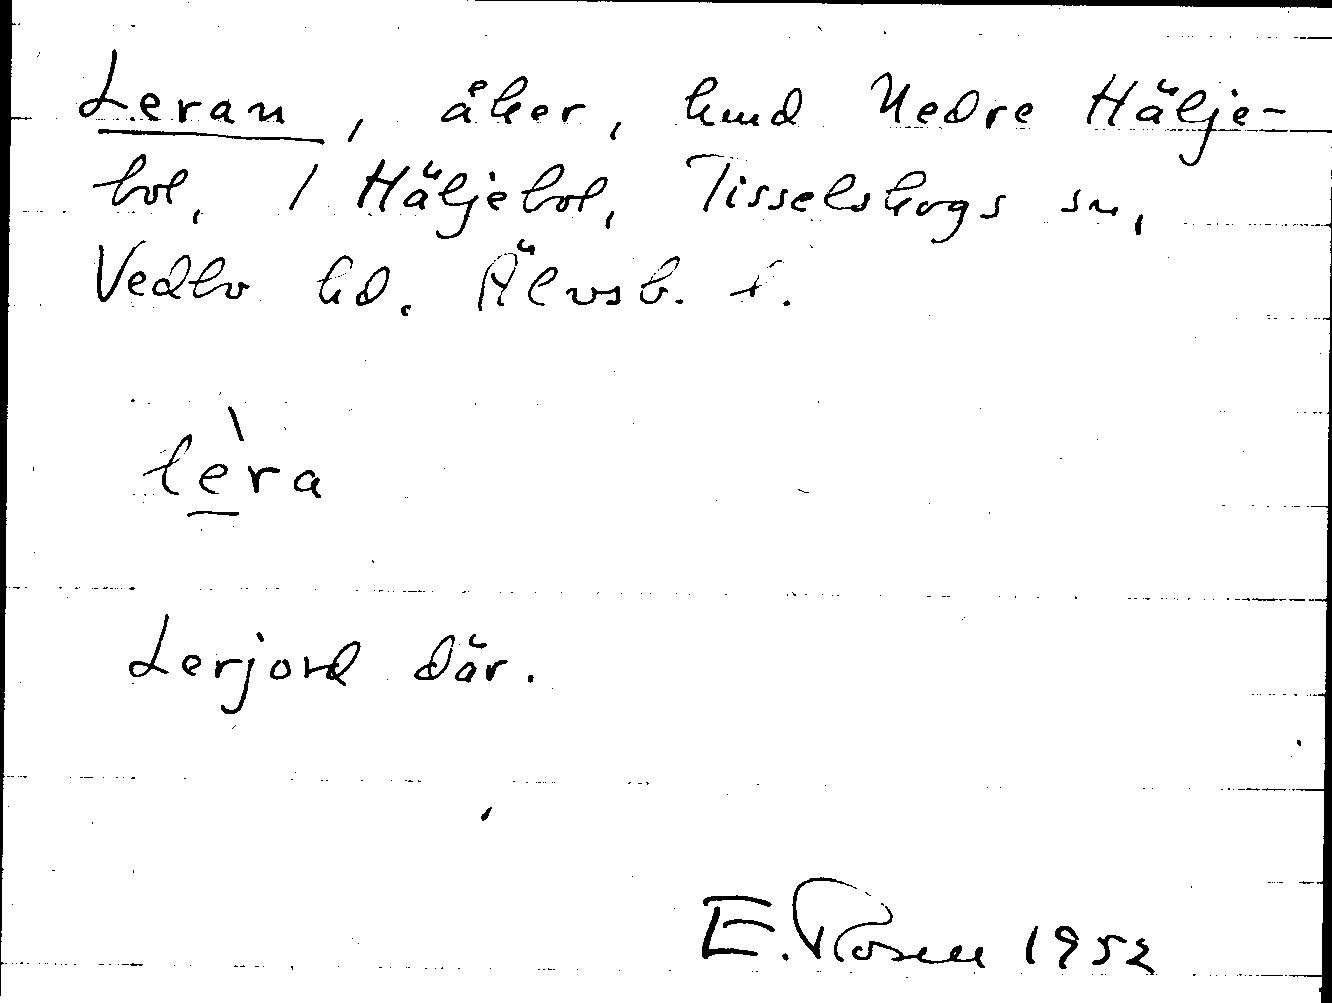 Leran, åker, hmd Nedre Hälje-
bol, 1 Häljebol, Tisselskogs sn,
Vedbo hd. Älvsb. l.
lèra
Lerjord där.
E. Rosen 1952